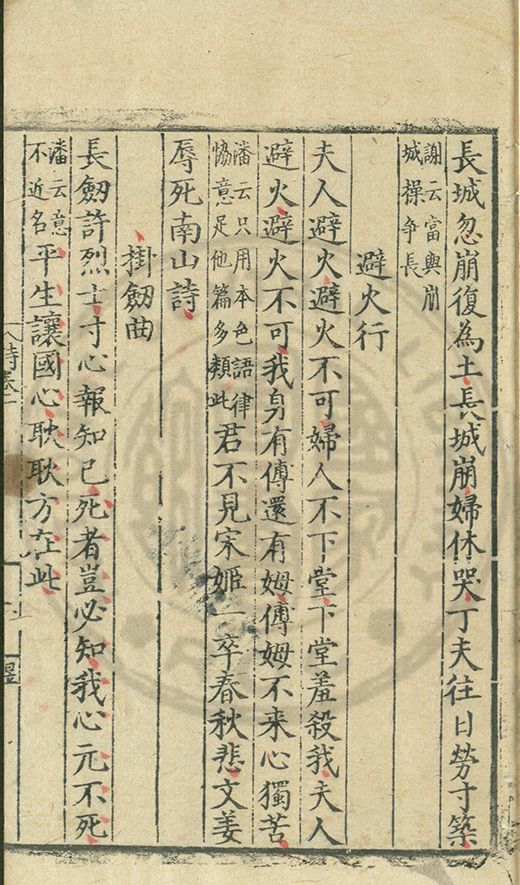 長城忽崩復為土長城崩婦休哭丁夫往日勞寸築
謝云當與崩
城操争長
避火行
夫人避火避火不可婦人不下堂下堂羞殺我夫人
避火避火不可我身有傅還有姆傅姆不来心獨苦
潘云只用本色語律
恊意足他篇多類此
君不見宋姬一卒春秋悲文姜
辱死南山詩
掛劒曲
長劒許烈士寸心報知已死者豈必知我心元不死
潘云意
不近名
平生讓國心耿耿方在此